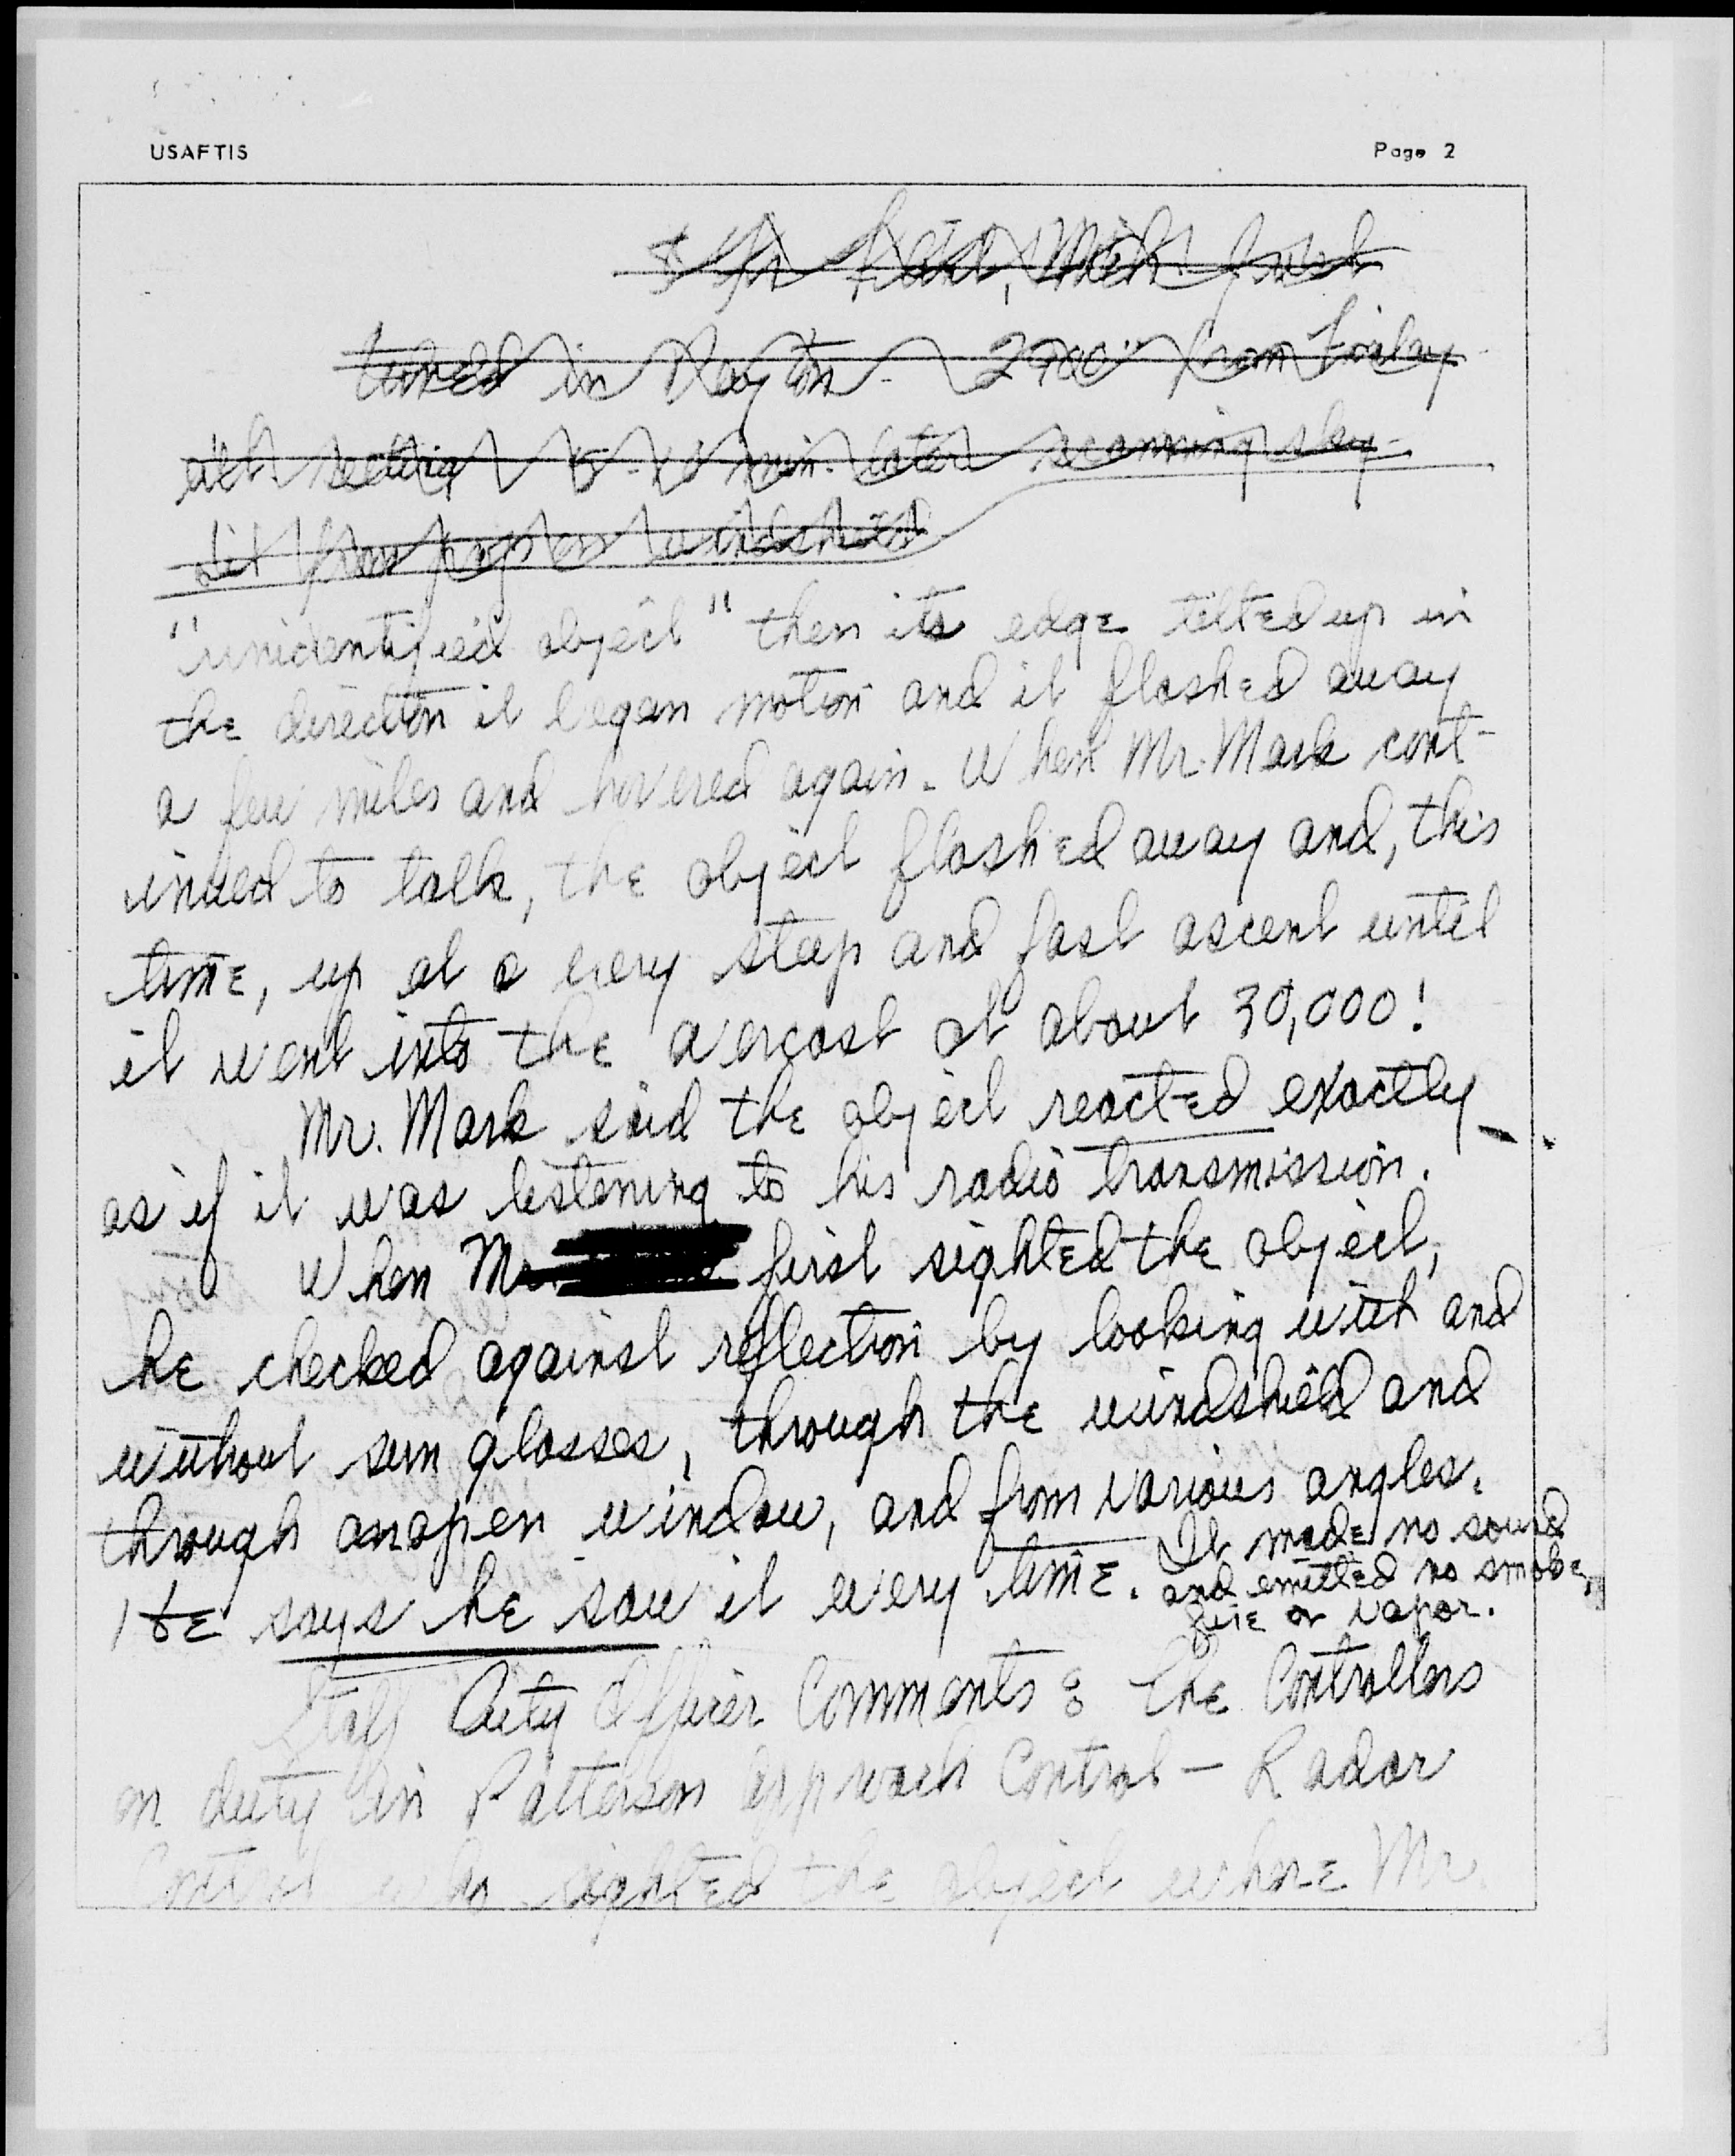 USAFTIS
Page 2
tuned in Dayton - from Finlay
min. later scanning sky -
from windshield
"unidentified object" then its edge tilted up in
the direction it began motion and it flashed away
a few miles and hovered again. When Mr. Mark cont-
inued to talk, the object flashed away and, this
time, up at a very steep and fast ascent until
it went into the overcast at about 30,000!
Mr. Mark said the object reacted exactly
as if it was listening to his radio transmission.
When Mr. first sighted the object,
he checked against reflection by looking with and
without sun glasses, through the windshield and
through an open window, and from various angles.
He says he saw it every time. It made no sound
and emitted no smoke,
fire or vapor.
Staff Duty Officer Comments: The Controllers
on duty in Patterson Approach Control - Radar
Control who sighted the object where Mr.